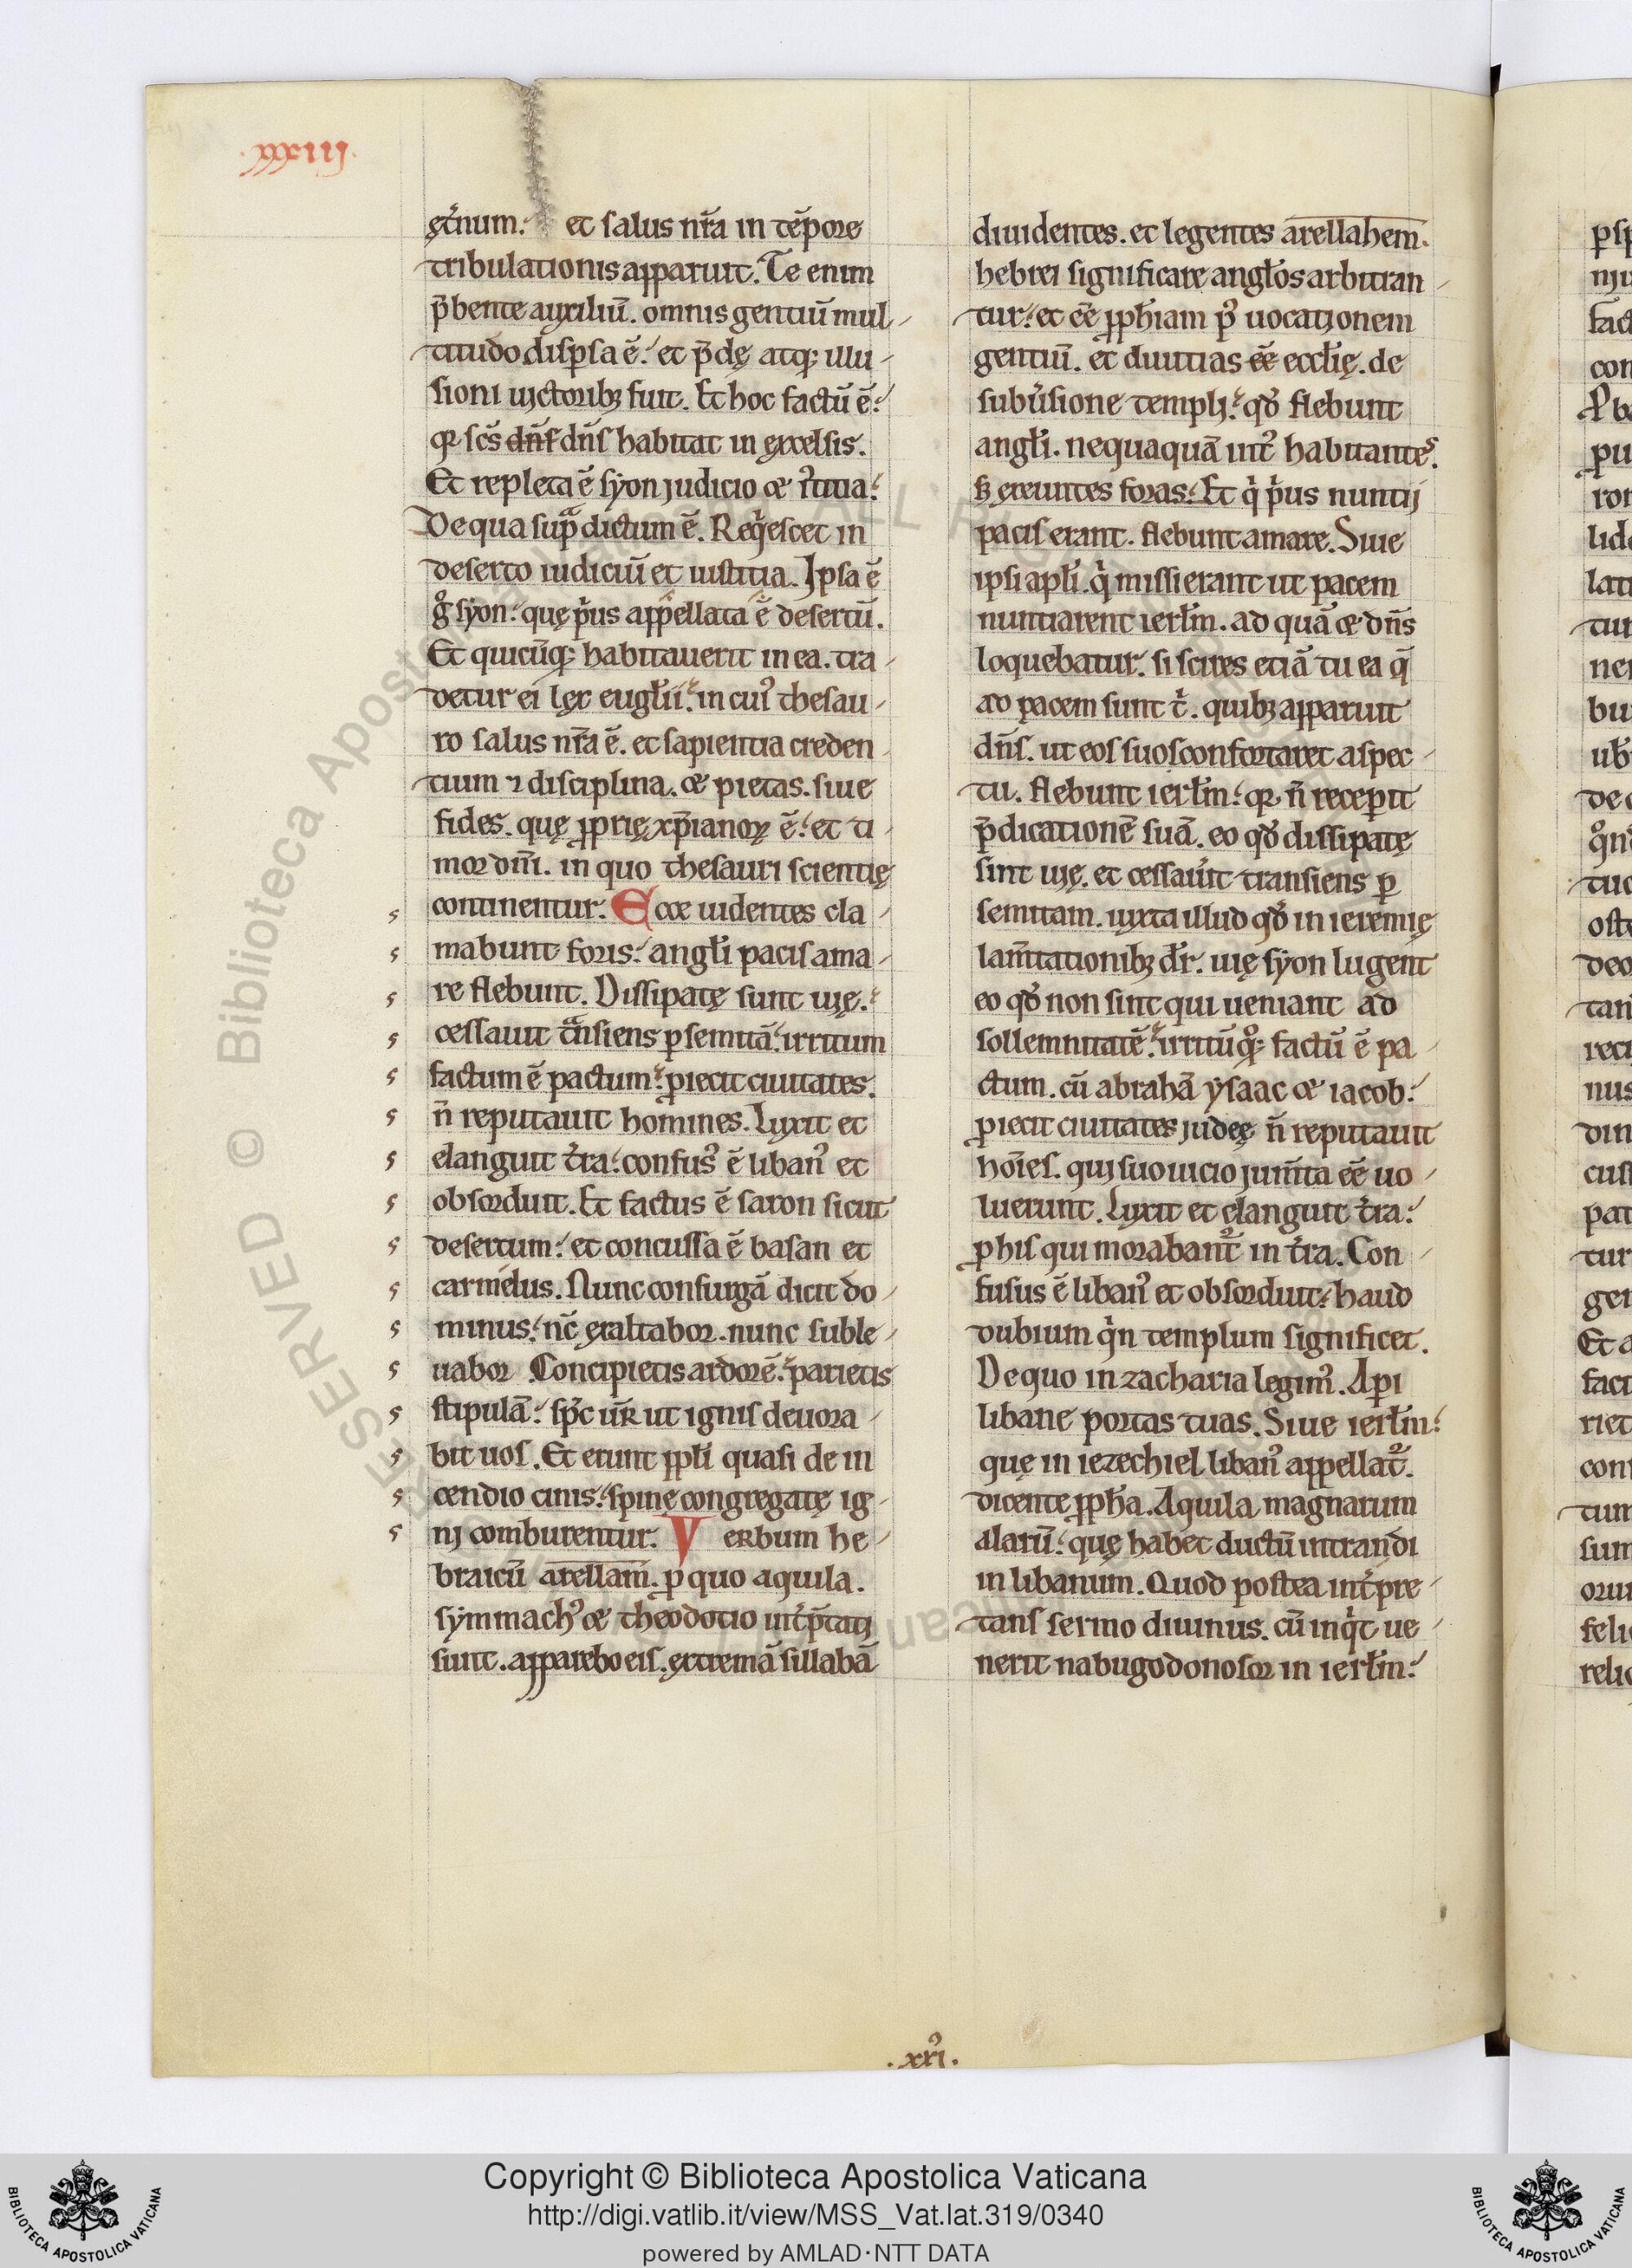 .xxxiij.
ęt̾num.ʼ et ſalus nr̄a in tēpore
tribulationis apparuit. Te enim
p̄bente auxiliū. omnis gentiū mul-
titudo diſpſa ē.ʼ et p̄dę atq; illu-
ſioni uictoribꝫ fuit. Et hoc factū ē.ʼ
qꝛ ſc̄s dn̄ſ dn̄ſ habitat in excelſis.
Et repleta ē ſyon judicio & iꝰtitia.ʼ
De qua ſupͣ dictum ē. Reqͥeſcet in
deſerto iudiciū et iuſtitia. Ipſa ē
gͦ ſyon.ʼ quę pͥus appellata ē deſertū.
Et quicūq; habitauerit in ea. tra-
detur ei lex euglꝉii.ʼ in cuiꝰ theſau-
ro ſalus nr̄a ē. et ſapientia creden-
tium ⁊ diſciplina. & pietas. ſiue
fides. quę ꝓprię xp̄ianoꝝ ē.ʼ et ti-
mor dn̄i. in quo theſauri ſcientię
continentur. Ecce uidentes cla-
mabunt foris.ʼ angꝉi paciſ ama-
re flebunt. Diſſipatę ſunt uię.ʼ
ceſſauit tͣnſiens ꝑ ſemitā.ʼ irritum
factum ē pactum.ʼ ꝓiecit ciuitates.
n̄ reputauit homines. Luxit et
elanguit t̾ra.ʼ confuſꝰ ē libanꝰ et
obſorduit. Et factus ē ſaron ſicut
deſertum.ʼ et concuſſa ē baſan et
carmelus. Nunc conſurgā dicit do-
minus.ʼ nc̄ exaltabor. nunc ſuble-
uabor Concipietis ardorē.ʼ parietis
ſtipulā.ʼ ſpc̄ ur̄ ut igniſ deuora-
bit uoſ. Et erunt ppꝉi quaſi de in
cendio cinis.ʼ ſpinę congregatę ig-
nj comburentur. Verbum he-
braicū arellam̄. ꝓ quo aquila.
ſymmachꝰ & theodotio int̾p̄tatj
ſunt. apparebo eiſ. extremā ſillabā
diuidentes. et legentes arellahem̄.
hebrei ſignificare angꝉos arbitran-
tur.ʼ et ēe ꝓph̄iam pꝰ uocatjonem
gentiū. et diuitias ēe eccꝉię. de
ſubu̾ſione templj.ʼ qđ flebunt
angꝉi. nequaquā int̾ habitantes.
ſꝫ exeuntes foras.ʼ Et qͥ pͥus nuntij
paciſ erant. flebunt amare. Siue
ipſi apꝉi. qͥ miſſi erant ut pacem
nuntiarent ierꝉm. ad quā & dn̄s
loquebatur. ſi ſcires etiā tu ea q̄
ad pacem ſunt tͥ. quibꝫ apparuit
dn̄ſ. ut eos ſuo ſconfortaret aſpec-
tu. flebunt ierꝉm.ʼ qꝛ n̄ recepit
p̄dicationē ſuā. eo qđ diſſipatę
ſint uię. et ceſſau̾it tranſiens ꝑ
ſemitam. iuxta illud qđ in ieremię
lam̄tationibꝫ dr̄. uię ſyon lugent
eo qđ non ſint qui ueniant ad
ſollemnitatē.ʼ irritūq; factū ē pa-
ctum. cū abrahā yſaac & iacob.ʼ
ꝓiecit ciuitates judeę n̄ reputauit
hoīeſ. qui ſuo uicio jum̄ta ēe uo-
luerunt. Luxit et elanguit t̾ra.ʼ
ꝓ hiſ qui morabant̾ in t̾ra. Con-
fuſus ē libanꝰ et obſorduit.ʼ haud
dubium qͥn templum ſignificet.
De quo in zacharia legimꝰ. Aꝑi
libane portas tuas. Siue ierꝉm.ʼ
quę in iezechiel libanꝰ appellat̾.
dicente ꝓph̄a. Aquila magnarum
alarū.ʼ quę habet ductū intrandi
in libanum. Quod poſtea int̾pre-
tanſ ſermo diuinus. cū inqͥt ue-
nerit nabugodonoſor in ierꝉm.ʼ
.xxꝰi.
Copyright © Biblioteca Apostolica Vaticana
http://digi.vatlib.it/view/MSS_Vat.lat.319/0340
powered by AMLAD·NTT DATA
BIBLIOTECA APOSTOLICA VATICANA
BIBLIOTECA APOSTOLICA VATICANA